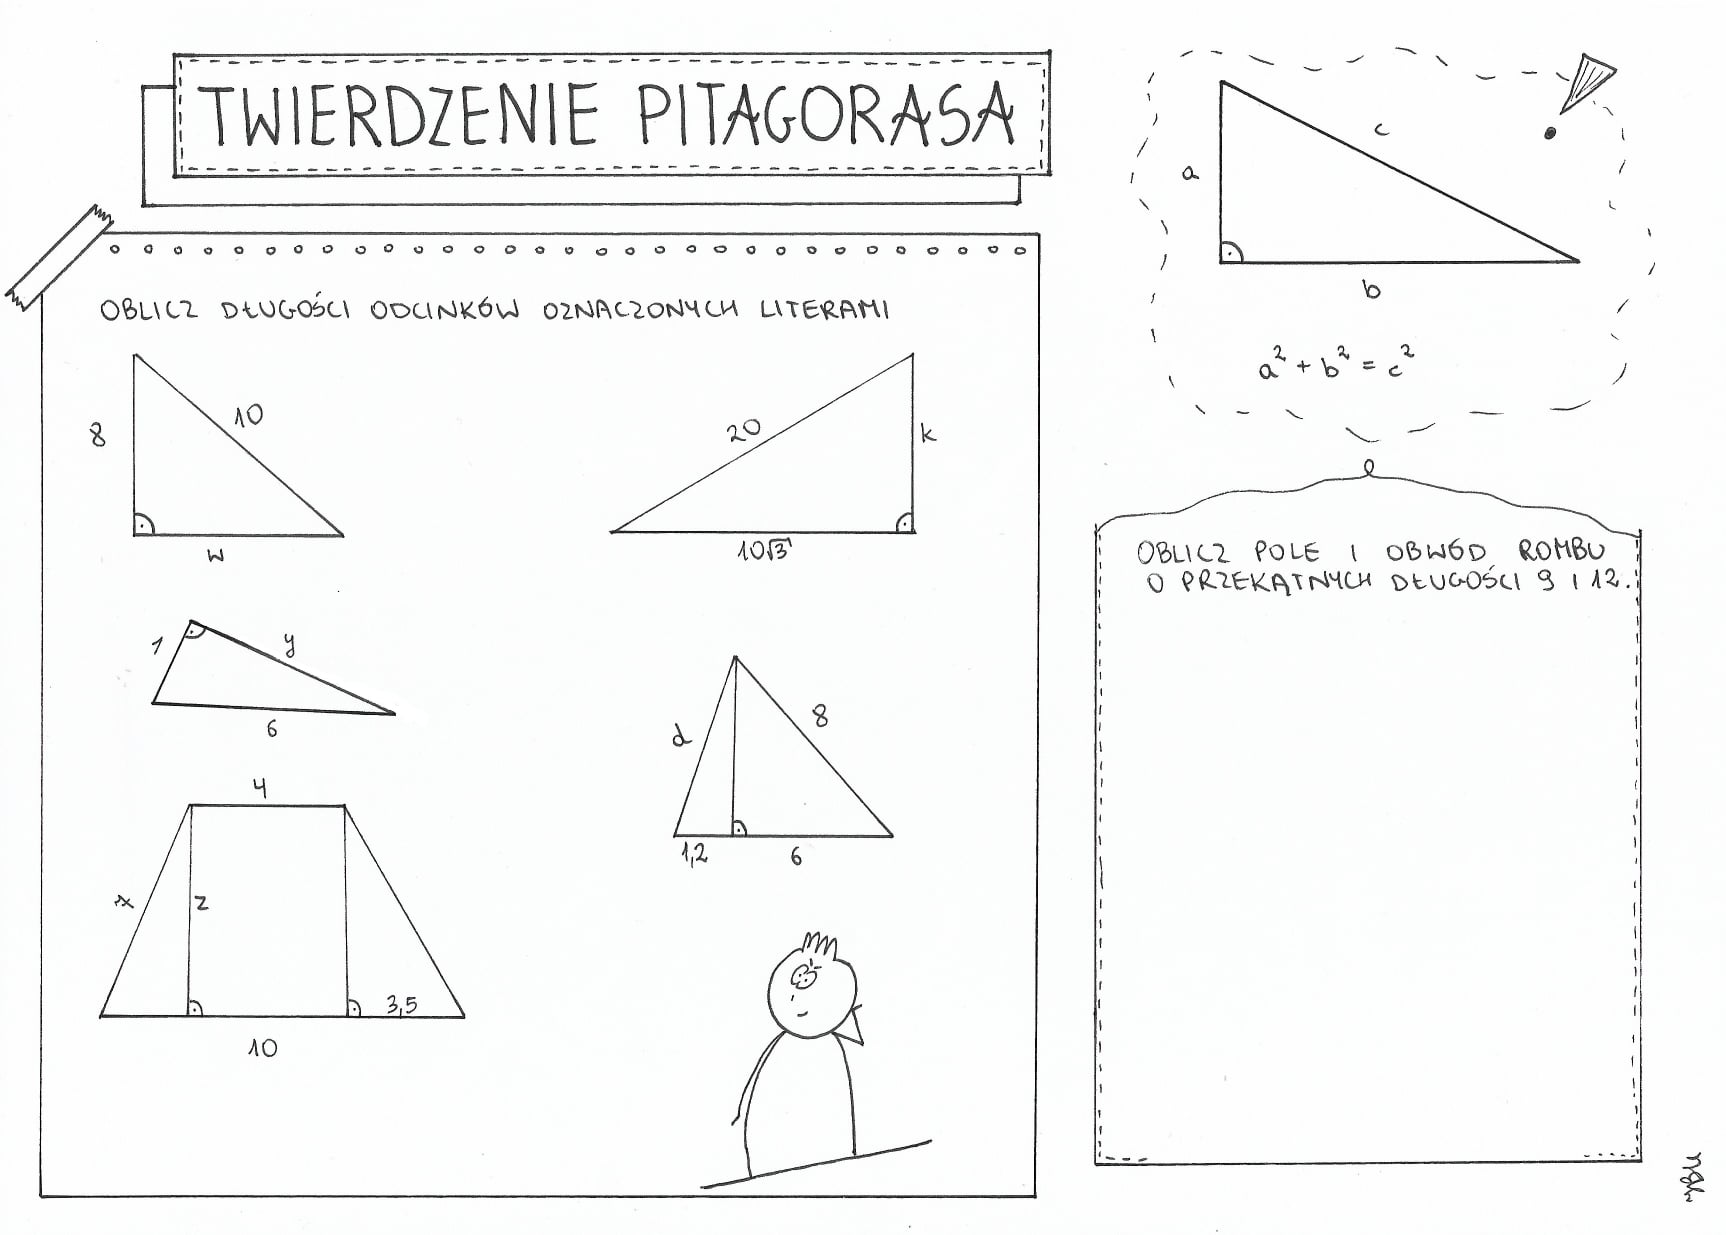 TWIERDZENIE PITAGORASA
OBLICZ DŁUGOŚCI ODCINKÓW OZNACZONYCH LITERAMI
8
10
w
20
k
10√3
1
y
6
d
8
1,2
6
4
x
z
3,5
10
a
c
b
a² + b² = c²
OBLICZ POLE I OBWÓD ROMBU
O PRZEKĄTNYCH DŁUGOŚCI 9 I 12.